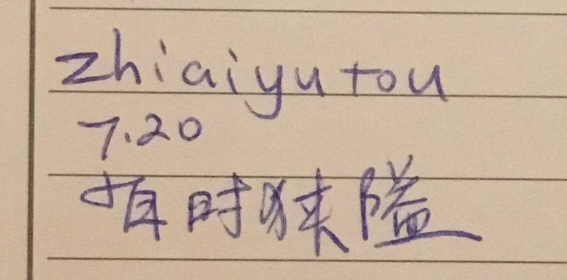 zhiaiyutou
7.20
有时狭隘